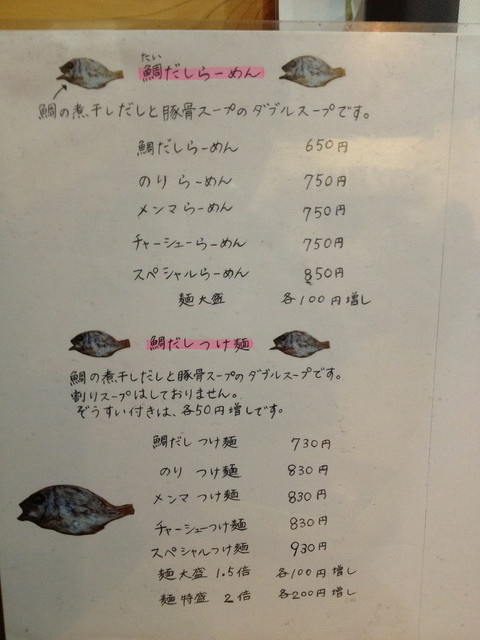 たい
鯛だしらーめん
鯛の煮干しだしと豚骨スープのダブルスープです。
鯛だしらーめん 650円
のりらーめん 750円
メンマらーめん 750円
チャーシューらーめん 750円
スペシャルらーめん 850円
麺大盛 各100円増し
鯛だしつけ麺
鯛の煮干しだしと豚骨スープのダブルスープです。
割りスープはしておりません。
ぞうすい付きは、各50円増しです。
鯛だしつけ麺 730円
のりつけ麺 830円
メンマつけ麺 830円
チャーシューつけ麺 830円
スペシャルつけ麺 930円
麺大盛 1.5倍 各100円増し
麺特盛 2倍 各200円増し